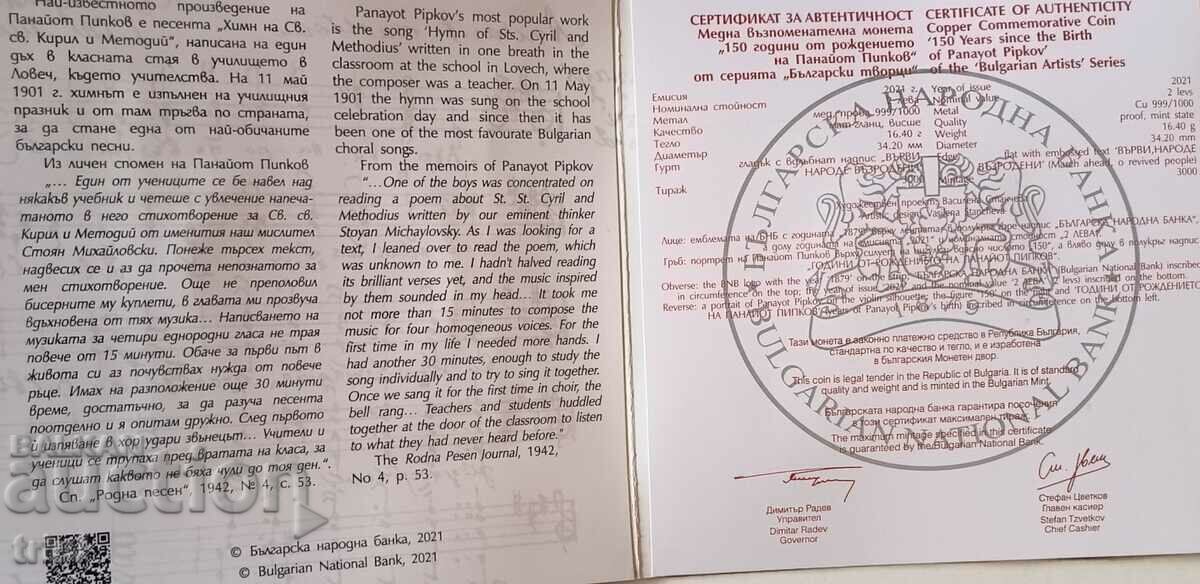 Най-известното произведение на
Панайот Пипков е песента „Химн на Св.
св. Кирил и Методий“, написана на един
дъх в класната стая в училището в
Ловеч, където учителства. На 11 май
1901 г. химнът е изпълнен на училищния
празник и от там тръгва по страната,
за да стане една от най-обичаните
български песни.
Из личен спомен на Панайот Пипков
„... Един от учениците се бе навел над
някакъв учебник и четеше с увлечение напеча-
таното в него стихотворение за Св. св.
Кирил и Методий от именития наш мислител
Стоян Михайловски. Понеже търсех текст,
надвесих се и аз да прочета непознатото за
мен стихотворение. Още не преполовил
бисерните му куплети, в главата ми прозвуча
вдъхновена от тях музика... Написването на
музиката за четири еднородни гласа не трая
повече от 15 минути. Обаче за първи път в
живота си аз почувствах нужда от повече
ръце. Имах на разположение още 30 минути
време, достатъчно, за да разуча песента
поотделно и я опитам дружно. След първото
ѝ изпяване в хор удари звънецът... Учители и
ученици се трупаха пред вратата на класа, за
да слушат каквото не бяха чули до тоя ден.“.
Сп. „Родна песен“, 1942, № 4, с. 53.
© Българска народна банка, 2021
© Bulgarian National Bank, 2021
Panayot Pipkov's most popular work
is the song ‘Hymn of Sts. Cyril and
Methodius’ written in one breath in the
classroom at the school in Lovech, where
the composer was a teacher. On 11 May
1901 the hymn was sung on the school
celebration day and since then it has
been one of the most favourate Bulgarian
choral songs.
From the memoirs of Panayot Pipkov
“...One of the boys was concentrated on
reading a poem about St. St. Cyril and
Methodius written by our eminent thinker
Stoyan Michaylovsky. As I was looking for a
text, I leaned over to read the poem, which
was unknown to me. I hadn't halved reading
its brilliant verses yet, and the music inspired
by them sounded in my head... It took me
not more than 15 minutes to compose the
music for four homogeneous voices. For the
first time in my life I needed more hands. I
had another 30 minutes, enough to study the
song individually and to try to sing it together.
Once we sang it for the first time in choir, the
bell rang... Teachers and students huddled
together at the door of the classroom to listen
to what they had never heard before.”
The Rodna Pesen Journal, 1942,
No 4, p. 53.
СЕРТИФИКАТ ЗА АВТЕНТИЧНОСТ
Медна възпоменателна монета
„150 години от рождението
на Панайот Пипков“
от серията „Български творци“
CERTIFICATE OF AUTHENTICITY
Copper Commemorative Coin
‘150 Years since the Birth
of Panayot Pipkov’
of the ‘Bulgarian Artists’ Series
Емисия 2021 г. Year of issue 2021
Номинална стойност 2 лева Nominal value 2 levs
Метал мед, проба 999/1000 Metal Cu 999/1000
Качество мат-гланц, висше Quality proof, mint state
Тегло 16.40 г Weight 16.40 g
Диаметър 34.20 мм Diameter 34.20 mm
Гурт гладък с вдлъбнат надпис „ВЪРВИ, Edge flat with embosed text ‘ВЪРВИ,НАРОДЕ
НАРОДЕ ВЪЗРОДЕНИ“ ВЪЗРОДЕНИ’ (March ahead, o revived people)
Тираж 3000 Mintage 3000
Художествен проект: Василена Станчева
Artistic design: Vasilena Stancheva
Лице: емблемата на БНБ с годината „1879“ върху лентата, в полукръг горе надпис „БЪЛГАРСКА НАРОДНА БАНКА“,
а долу годината на емисията „2021“ и номиналната стойност „2 ЛЕВА“.
Гръб: портрет на Панайот Пипков върху силует на цигулка, вдясно числото „150“, а вляво долу в полукръг надпис
„ГОДИНИ ОТ РОЖДЕНИЕТО НА ПАНАЙОТ ПИПКОВ“.
Obverse: the BNB logo with the year ‘1879’ on the strip; ‘БЪЛГАРСКА НАРОДНА БАНКА’ (Bulgarian National Bank) inscribed
in circumference on the top; the year of issue ‘2021’ and the nominal value ‘2 ЛЕВА’ (2 levs) inscribed on the bottom.
Reverse: a portrait of Panayot Pipkov on the violin silhouette, the figure ‘150’ on the right and ‘ГОДИНИ ОТ РОЖДЕНИЕТО
НА ПАНАЙОТ ПИПКОВ’ (Years of Panayot Pipkov's birth) inscribed in circumference on the bottom left.
Тази монета е законно платежно средство в Република България,
стандартна по качество и тегло, и е изработена
в българския Монетен двор.
This coin is legal tender in the Republic of Bulgaria. It is of standard
quality and weight and is minted in the Bulgarian Mint.
Българската народна банка гарантира посочения
в този сертификат максимален тираж.
The maximum mintage specified in this certificate
is guaranteed by the Bulgarian National Bank.
БЪЛГАРСКА НАРОДНА БАНКА
BULGARIAN NATIONAL BANK
Димитър Радев
Управител
Dimitar Radev
Governor
Стефан Цветков
Главен касиер
Stefan Tzvetkov
Chief Cashier
auction